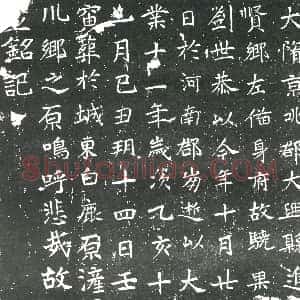 大隋京兆郡大興縣進
賢鄉左脩身府故驍果
劉世恭以今年十月廿
日於河南郡逝以大
業十一年歲次乙亥十
月己丑朔十四日壬
寅葬於城東白鹿原滻
川鄉之原嗚呼悲哉故
立銘記
Shufaziliao.com